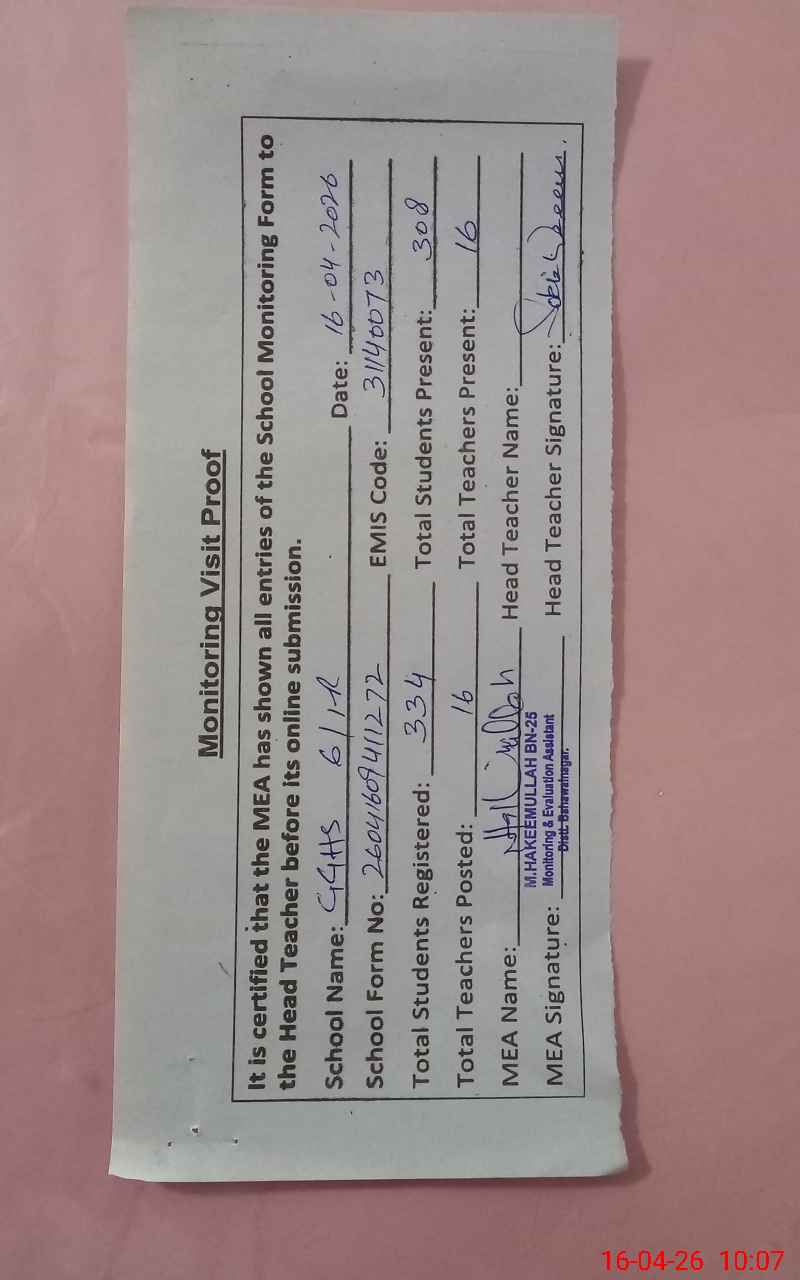 Monitoring Visit Proof
It is certified that the MEA has shown all entries of the School Monitoring Form to
the Head Teacher before its online submission.
School Name: GGHS 6/1-R Date: 16-04-2026
School Form No: 26041609411272 EMIS Code: 31140073
Total Students Registered: 334 Total Students Present: 308
Total Teachers Posted: 16 Total Teachers Present: 16
MEA Name: Head Teacher Name:
M.HAKEEMULLAH BN-25
Monitoring & Evaluation Assistant
Distt. Bahawalnagar.
MEA Signature: Head Teacher Signature:
16-04-26 10:07